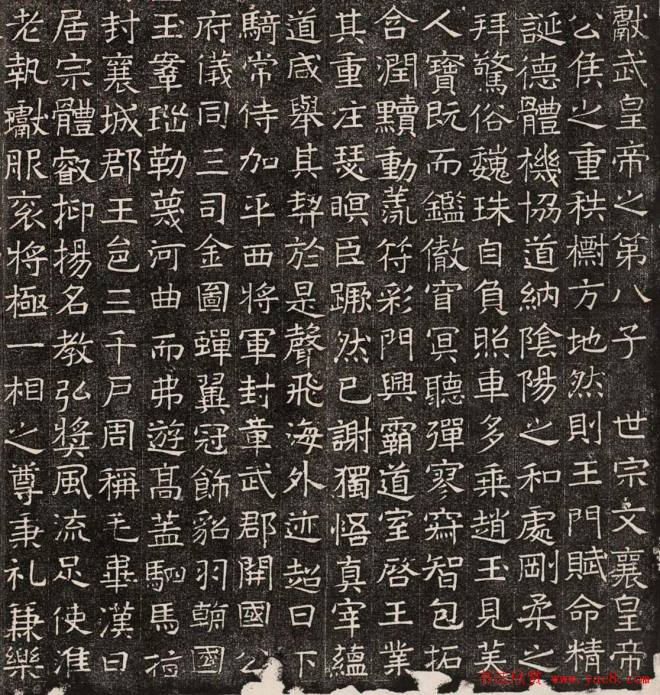 獻武皇帝之第八子 世宗文襄皇帝
公侯之重秩櫛方地然則王門賦命精
誕德體機協道納陰陽之和處剛柔之
拜驚俗巍珠自負照車多乘趙玉見美
人寶既而鑑徹窅冥聽彈寥窮智包拓
含潤黷動蕩符彩門興霸道室啓王業
其重注瑟瞑臣蹶然已謝獨悟真宰蘊
道咸舉其契於是聲飛海外迹超日下
騎常侍加平西將軍封章武郡開國公
府儀同三司金圖蟬翼冠飾貂羽朝國
玉羣瑙勒蔑河曲而弗遊高蓋駟馬
封襄城郡王邑三千戶周稱毛畢漢曰
居宗體叡抑揚名教弘獎風流足使淮
老執瓛服袞將極一相之尊秉礼兼樂